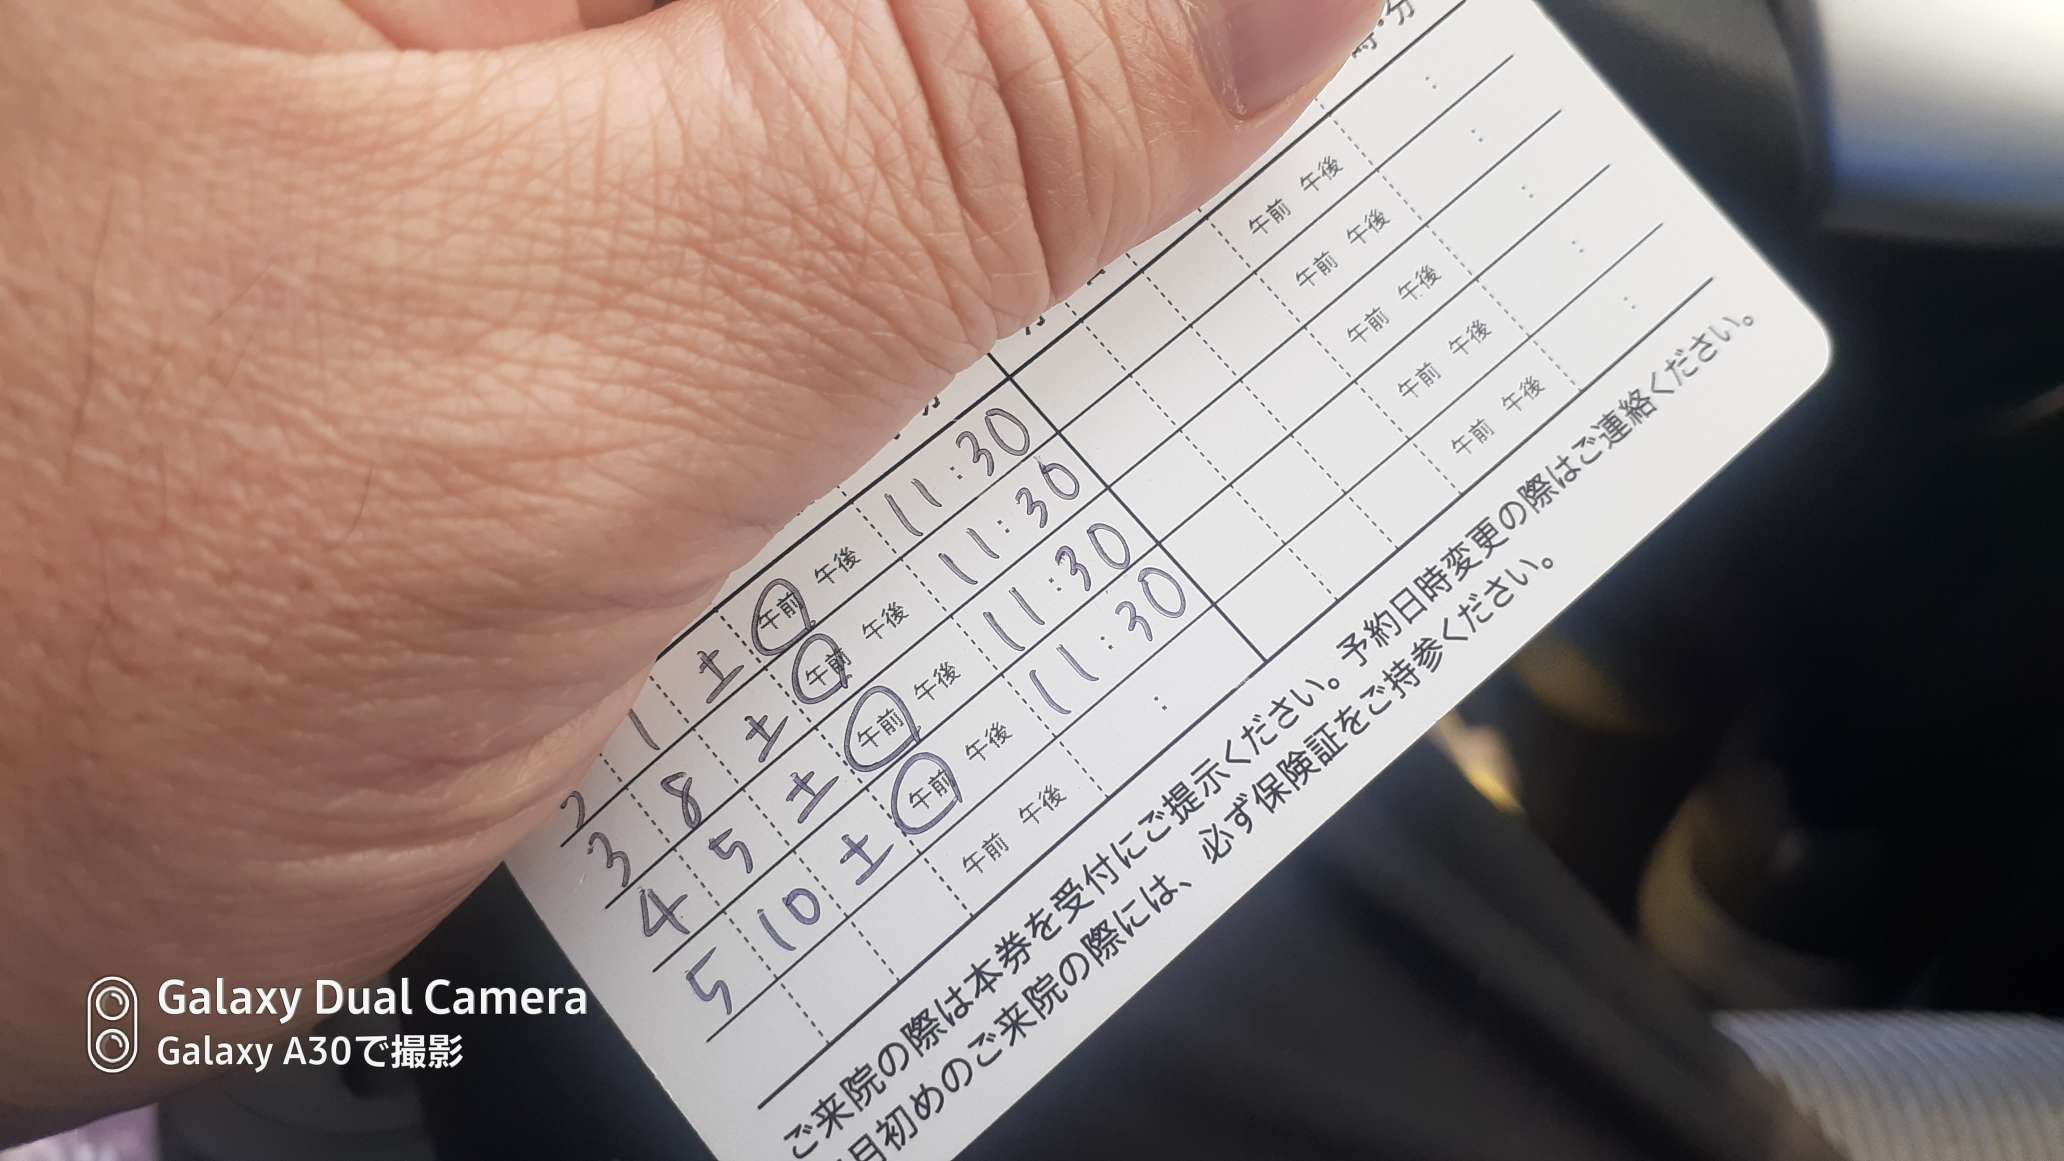 時・分
午前 午後 :
午前 午後 :
午前 午後 :
午前 午後 :
午前 午後 :
1 土 午前 午後 11:30
3 8 土 午前 午後 11:30
4 5 土 午前 午後 11:30
5 10 土 午前 午後 11:30
午前 午後 :
ご来院の際は本券を受付にご提示ください。予約日時変更の際はご連絡ください。
月初めのご来院の際には、必ず保険証をご持参ください。
Galaxy Dual Camera
Galaxy A30で撮影